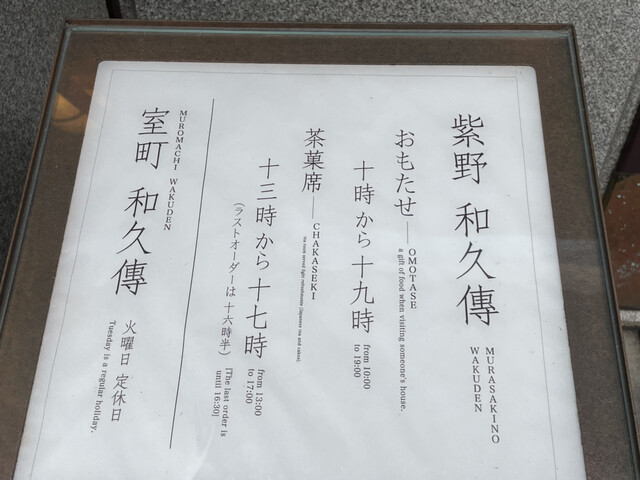 紫野 和久傳
MURASAKINO
WAKUDEN
おもたせ── OMOTASE
a gift of food when visiting someone's house.
十時から十九時
from 10:00
to 19:00
茶菓席── CHAKASEKI
tea room served light refreshments (Japanese tea and cakes).
十三時から十七時
from 13:00
to 17:00
(ラストオーダーは 十六時半)
[The last order is
until 16:30]
MUROMACHI WAKUDEN
室町 和久傳
火曜日 定休日
Tuesday is a regular holiday.